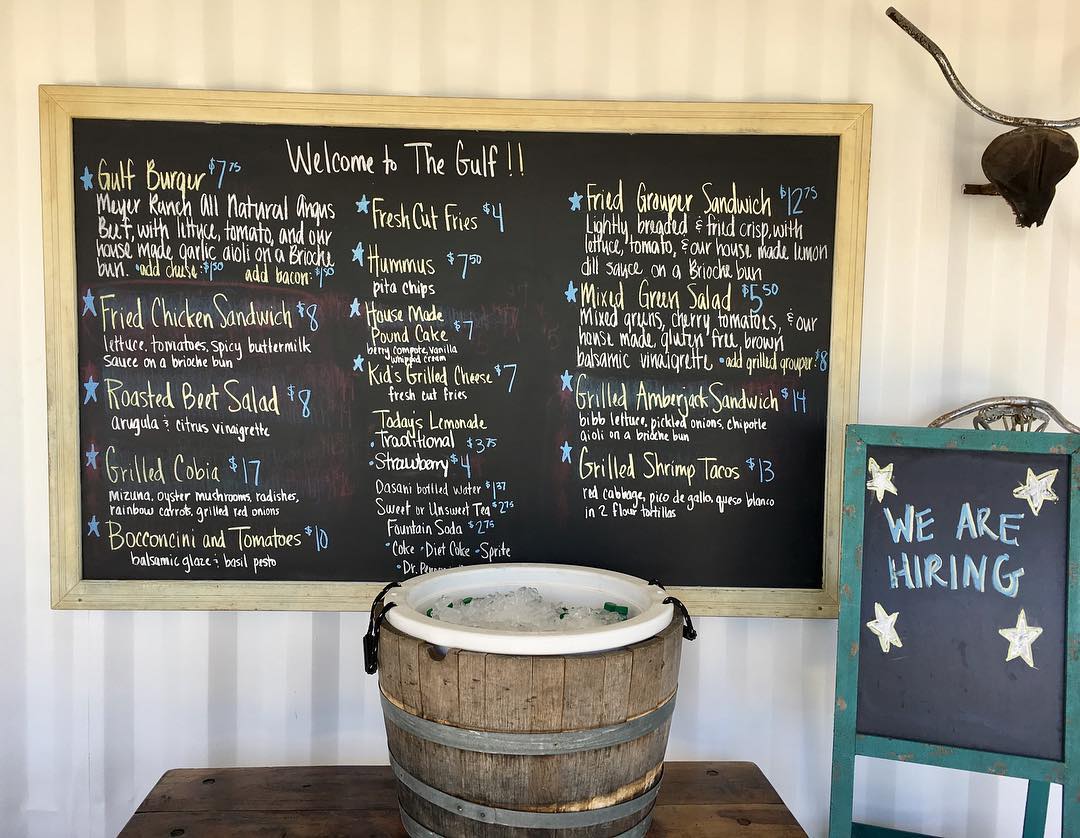 Welcome to The Gulf!!
Gulf Burger $7.75
Meyer Ranch All Natural Angus
Beef, with lettuce, tomato, and our
house made garlic aioli on a Brioche
bun. •add cheese: $1.50 add bacon: $1.50
Fried Chicken Sandwich $8
lettuce, tomatoes, spicy buttermilk
sauce on a brioche bun
Roasted Beet Salad $8
arugula & citrus vinaigrette
Grilled Cobia $17
mizuna, oyster mushrooms, radishes,
rainbow carrots, grilled red onions
Bocconcini and Tomatoes $10
balsamic glaze & basil pesto
Fresh Cut Fries $4
Hummus $7.50
pita chips
House Made
Pound Cake $7
berry compote, vanilla
whipped cream
Kid's Grilled Cheese $7
fresh cut fries
Today's Lemonade
•Traditional $3.75
•Strawberry $4
Dasani bottled water $1.37
Sweet or Unsweet Tea $2.75
Fountain Soda $2.75
•Coke •Diet Coke •Sprite
•Dr.
Fried Grouper Sandwich $12.75
Lightly breaded & fried crisp, with
lettuce, tomato, & our house made lemon
dill sauce on a Brioche bun
Mixed Green Salad $5.50
Mixed greens, cherry tomatoes, & our
house made, gluten free, brown
balsamic vinaigrette •add grilled grouper: $8
Grilled Amberjack Sandwich $14
bibb lettuce, pickled onions, chipotle
aioli on a brioche bun
Grilled Shrimp Tacos $13
red cabbage, pico de gallo, queso blanco
in 2 flour tortillas
WE ARE
HIRING